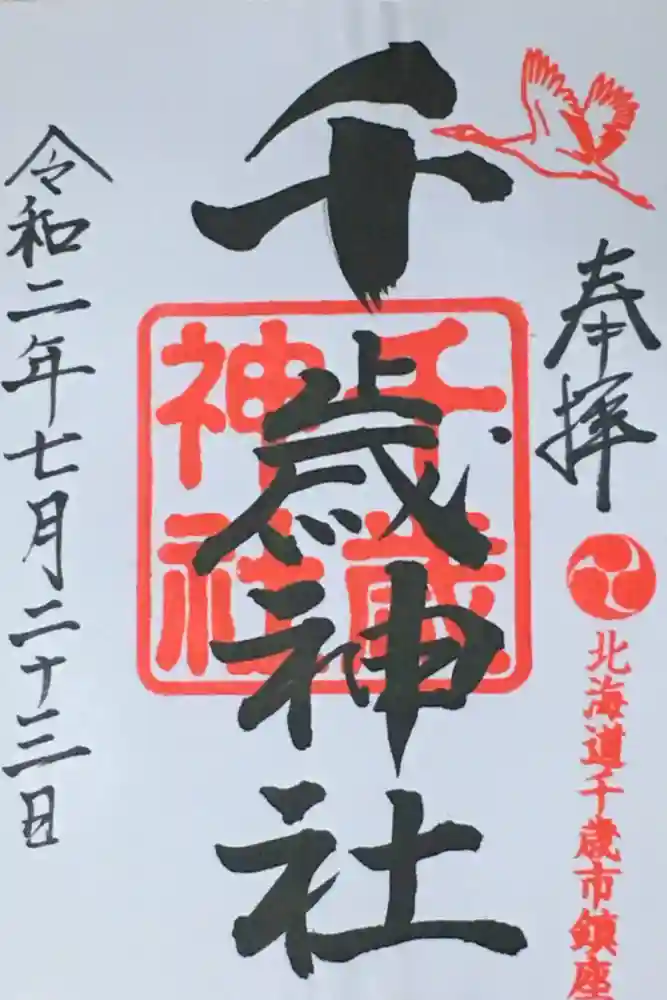 奉拝
北海道千歳市鎮座
千歳神社
千歳
神社
令和二年七月二十三日